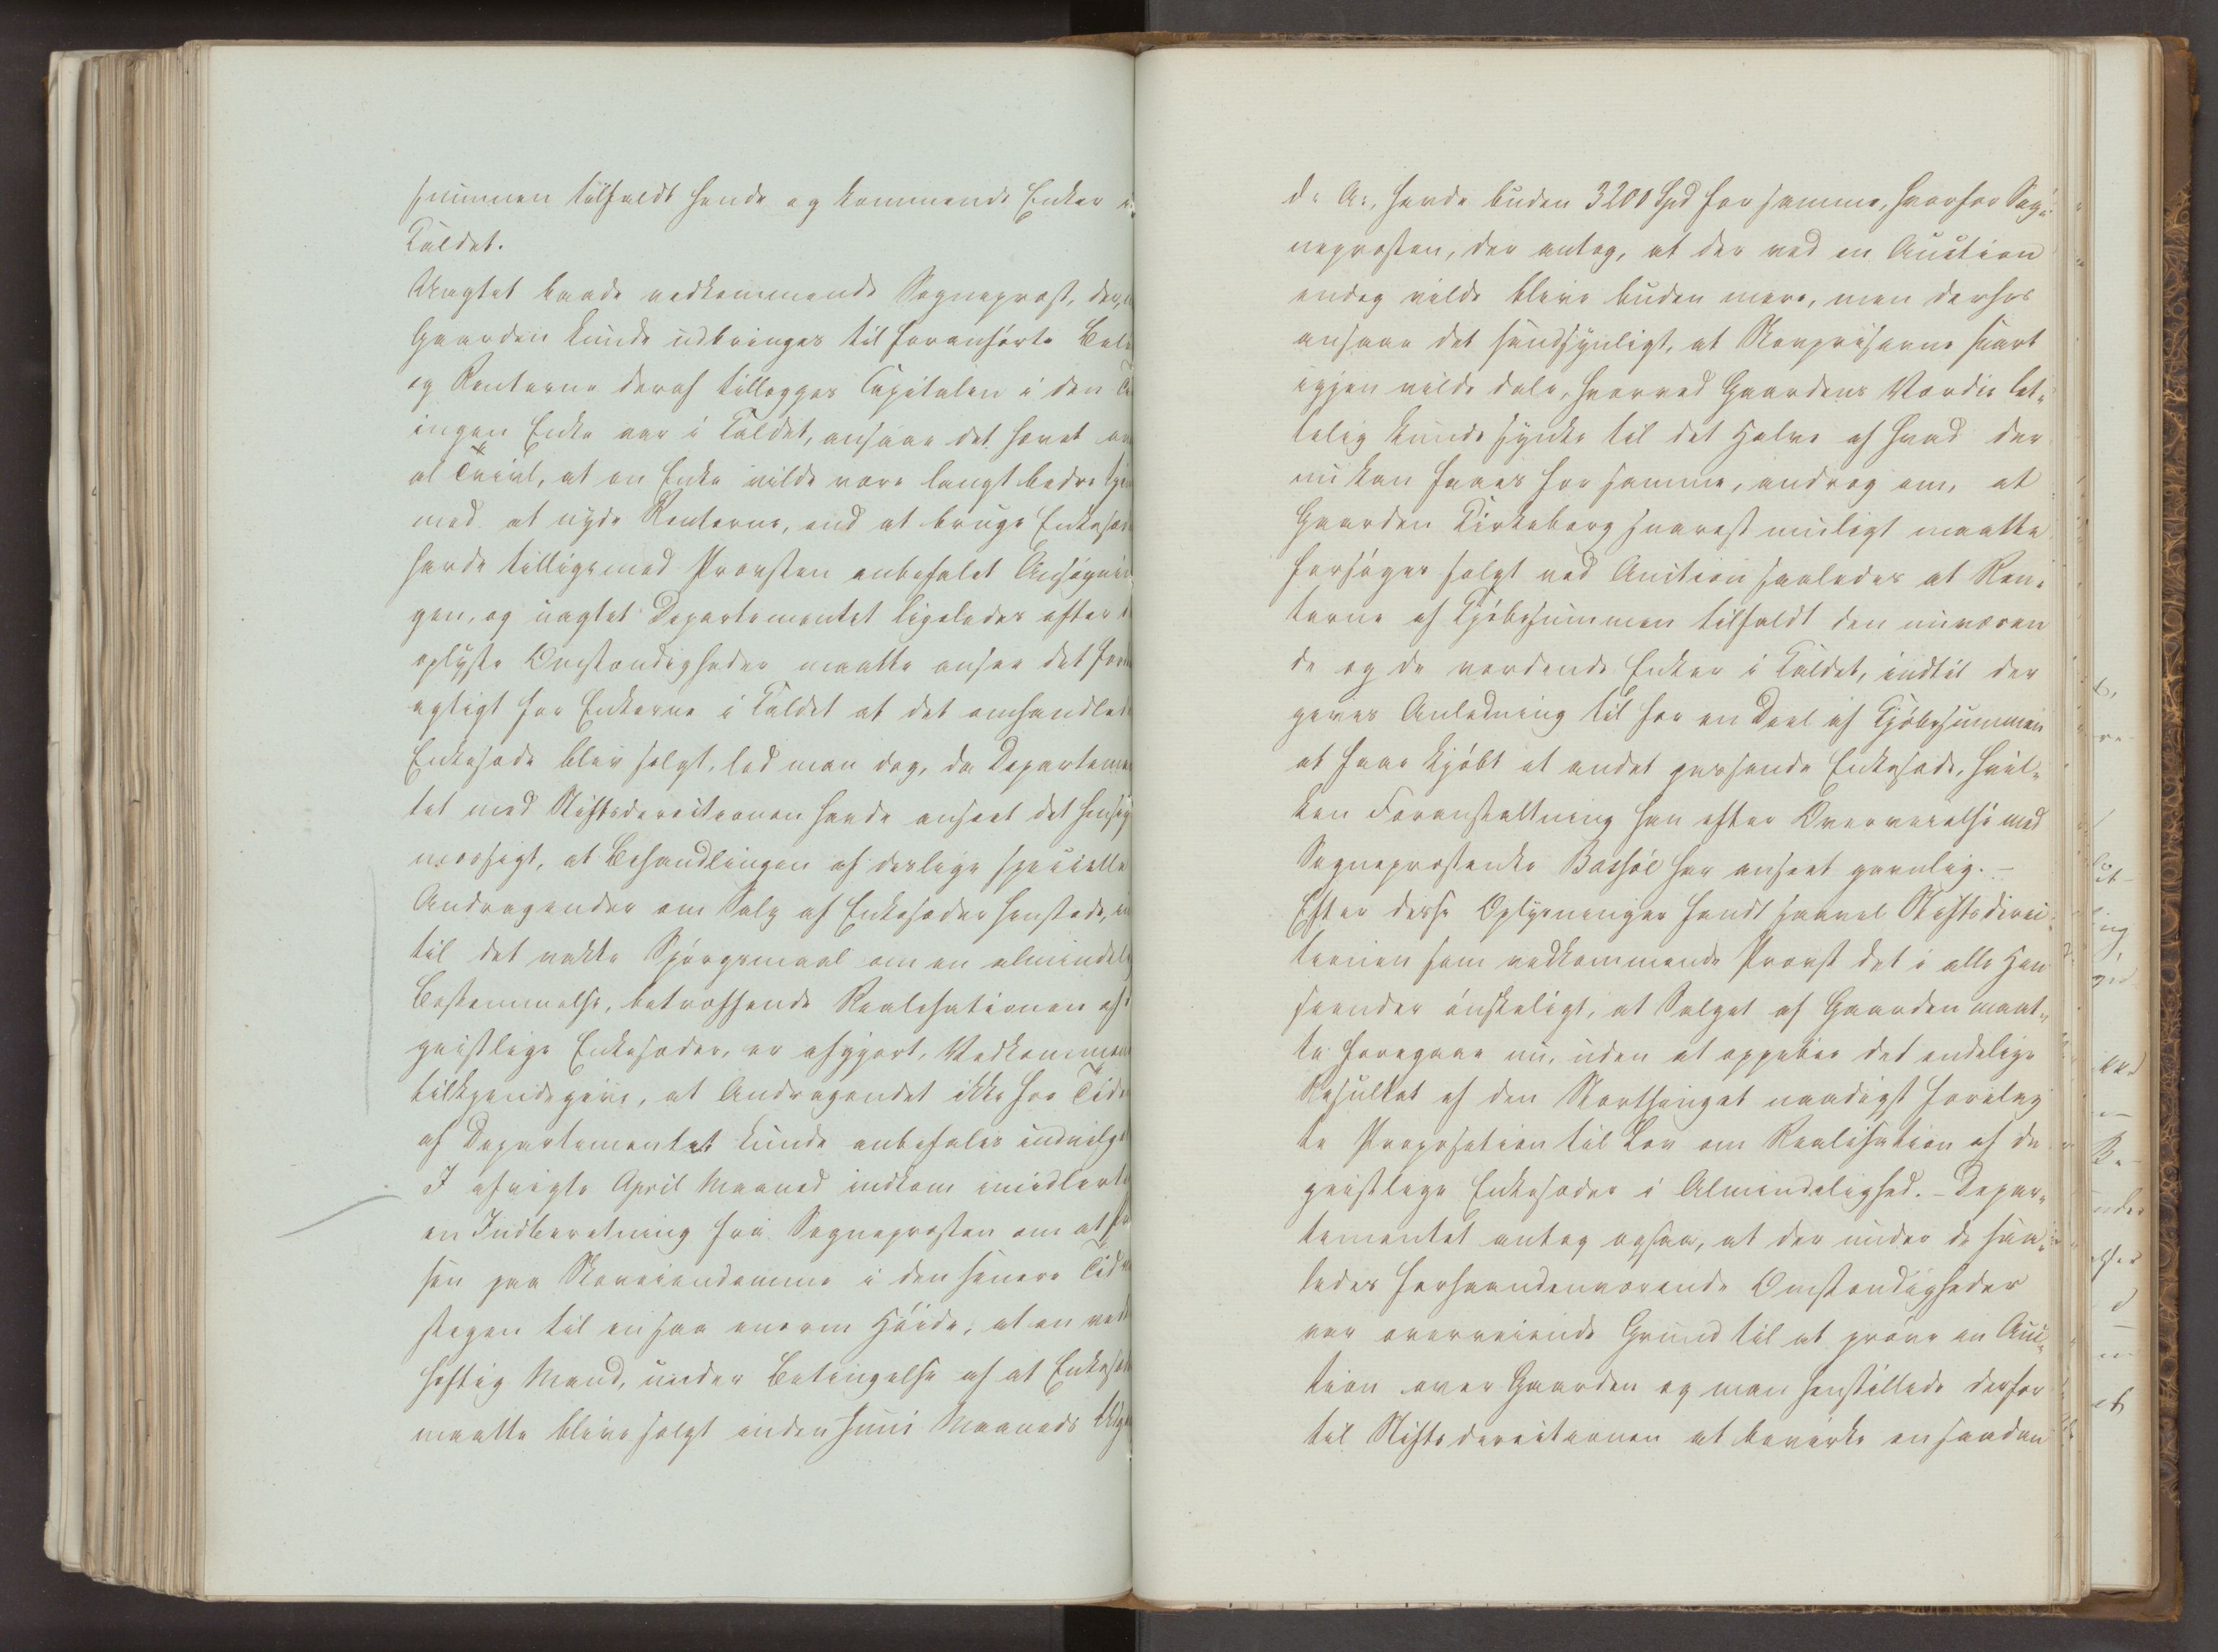 summen tilfaldt hende og kommende Enker i
Kaldet.
Uagtet baade vedkommende Sogneprest, der,
Gaarden kunde udbringes til foranførte Belø
og Renterne deraf tillægges Capitalen i den
ingen Enke var i Kaldet, ansaae det hævet
al Tvivl, at en Enke vilde være langt bedre tjen
med at nyde Renterne, end at bruge Enkesæd
havde tilligemed Provsten anbefalet Ansøgnin
gen, og uagtet Departementet ligeledes efter
oplyste Omstændigheder maatte ansee det for
agtigt for Enkerne i Kaldet at det omhandlede
Enkesæde blev solgt, lod man dog, da Departemen
tet med Stiftsdirectionen havde anseet det hensig
mæssigt, at Behandlingen af deslige specielle
Andragender om Salg af Enkesæder henstode, in
til det vakte Spørgsmaal om en almindeli
Bestemmelse, betræffende Realisationen af
geistlige Enkesæder, er afgjort, Vedkommen
tilkjendegive, at Andragendet ikke for Tiden
af Departementet kunde anbefales indvilge
I afvigte April Maaned indkom imidlerti
en Indberetning fra Sognepresten om at
sen paa Skoveiendomme i den senere Tid
stegen til en saa enorm Høide, at en ved
hæftig Mand, under Betingelse af at Enkesæd
maatte blive solgt inden Juni Maaneds Udga
d. A., havde buden 3200 Spd for samme, hvorfor Sog-
nepresten, der antog, at der ved en Auction
endog vilde blive buden mere, men derhos
ansaae det sandsynligt, at Skovpriserne snart
igjen vilde dale, hvorved Gaardens Værdie let-
telig kunde synke til det Halve af hvad der
nu kan faaes for samme, androg om, at
Gaarden Kirkeberg snarest muligt maatte
forsøges solgt ved Auction saaledes at Ren-
terne af Kjøbesummen tilfaldt den nuværen
de og de vordende Enker i Kaldet, indtil der
gaves Anledning til for en Deel af Kjøbesummen
at faae kjøbt et andet passende Enkesæde, hvil-
ken Foranstaltning han efter Overveielse med
Sogneprestenke Bassøe har anseet gavnlig. -
Efter disse Oplysninger fandt saavel Stiftsdirec-
tionen som vedkommende Provst det i alle Hen
seender ønskeligt, at Salget af Gaarden maat-
te foregaae nu, uden at oppebie det endelige
Resultat af den Storthinget naadigst forelag
te Proposition til Lov om Realisation af de
geistlige Enkesæder i Almindelighed. - Depar-
tementet antog ogsaa, at der under de saa-
ledes forhaandenværende Omstændigheder
var overveiende Grund til at prøve en Auc-
tion over Gaarden og man henstillede derfor
til Stiftsdirectionen at bevirke en saadan